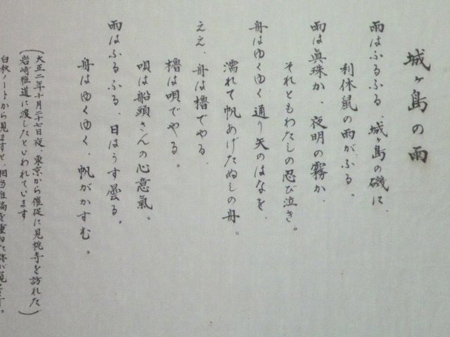 城ヶ島の雨
雨はふるふる 城ヶ島の磯に、
利休鼠の雨がふる。
雨は眞珠か、夜明の霧か、
それともわたしの忍び泣き。
舟はゆくゆく 通り矢のはなを、
濡れて帆あげたぬしの舟。
ええ、舟は櫓でやる、
櫓は唄でやる、
唄は船頭さんの心意氣。
雨はふるふる、日はうす曇る。
舟はゆくゆく、帆がかすむ。
(大正二年十月二十七夜、東京から催促に見桃寺を訪れた
岩崎雅道に渡したといわれています
白秋ノートから見ますと、相当推敲を重ね